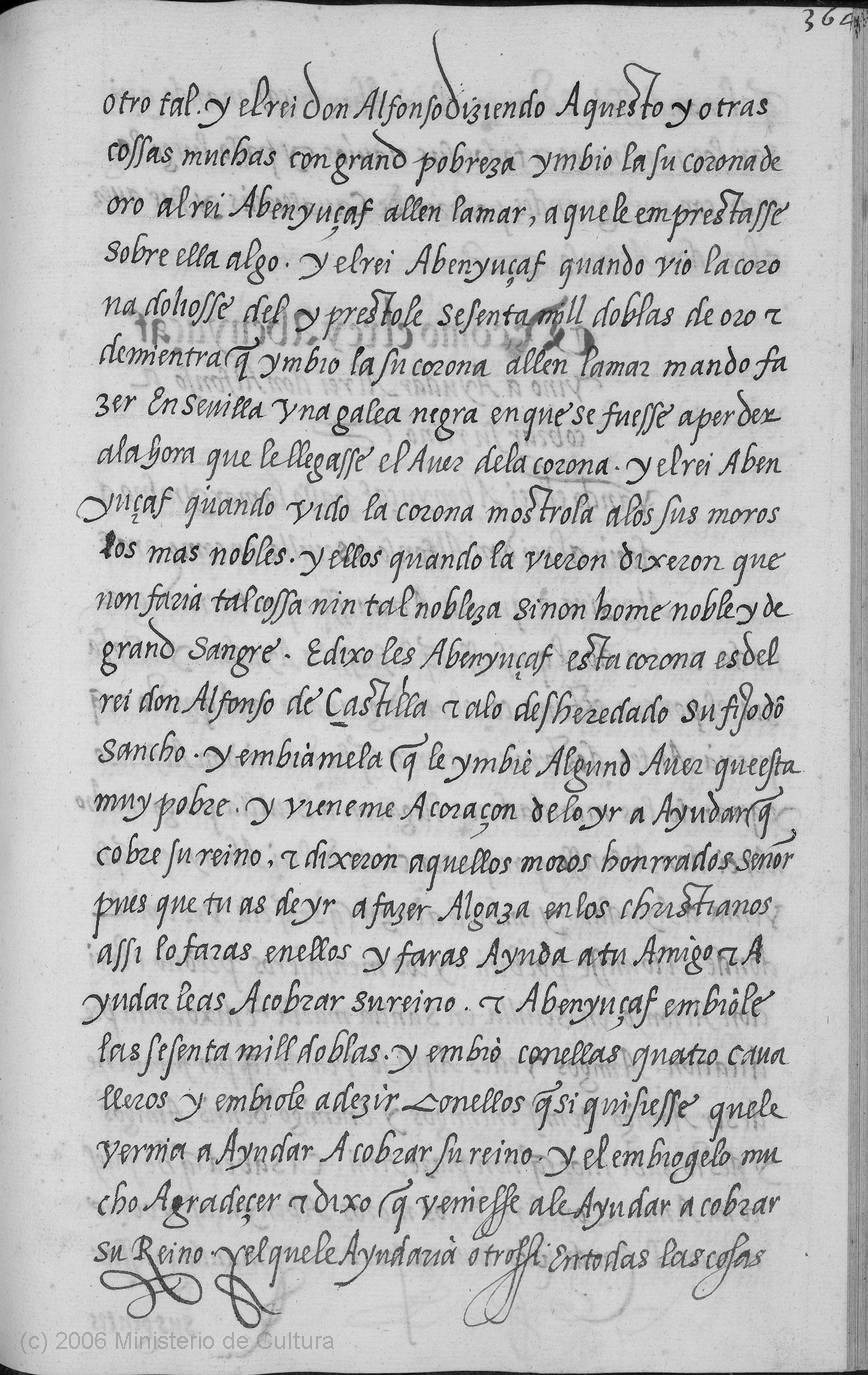 364
otro tal. y el rei don Alfonso diziendo Aquesto y otras
cossas muchas con grand pobreza ymbio la su corona de
oro al rei Abenyuçaf allen la mar, a que le emprestasse
sobre ella algo. y el rei Abenyuçaf quando vio la coro
na doliosse del y prestole sesenta mill doblas de oro τ
demientra q̃ ymbio la su corona allen la mar mando fa
zer En Sevilla vna galea negra en que se fuesse a perder
ala hora que le llegasse el Auer dela corona. y el rei Aben
yuçaf quando vido la corona mostrola alos sus moros
los mas nobles. y ellos quando la vieron dixeron que
non faria tal cossa nin tal nobleza sinon home noble y de
grand sangre. E dixo les Abenyuçaf esta corona es del
rei don Alfonso de Castilla τ alo desheredado su fijo dõ
Sancho. y embiàmela q̃ le ymbiè Algund Auer que esta
muy pobre. y vieneme A coraçon de lo yr a Ayudar q̃
cobre su reino, τ dixeron aquellos moros honrrados señor
pues que tu as de yr a fazer Algaza en los christianos
assi lo faras en ellos y faras Ayuda a tu Amigo τ A
yudar le as A cobrar su reino. τ Abenyuçaf embiòle
las sesenta mill doblas. y embiò con ellas quatro caua
lleros y embiole a dezir Con ellos q̃ si quisiesse que le
vernia a Ayudar A cobrar su reino. y el embiogelo mu
cho Agradeçer τ dixo q̃ veniesse a le Ayudar a cobrar
su Reino. y el que le Ayudarià otrossi En todas las cosas
(c) 2006 Ministerio de Cultura